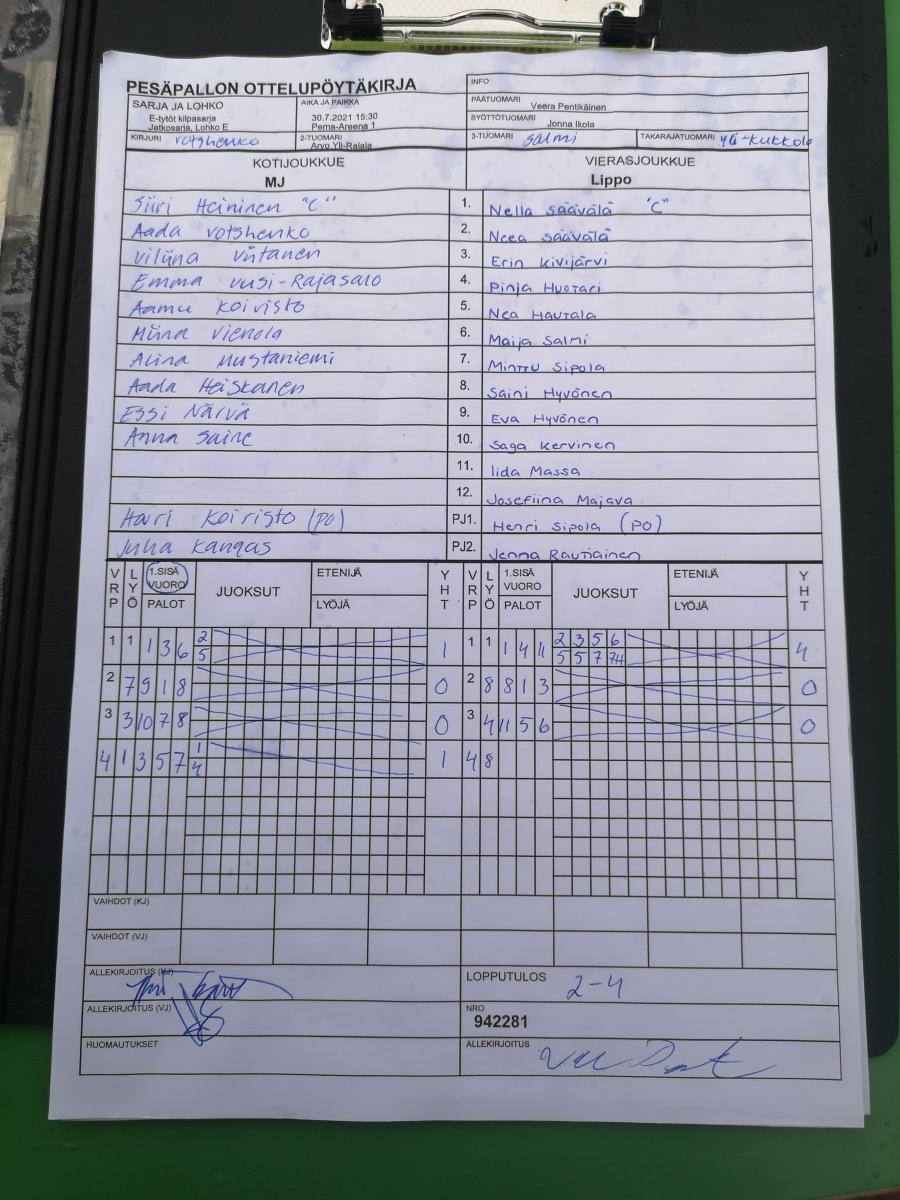 PESÄPALLON OTTELUPÖYTÄKIRJA
INFO
SARJA JA LOHKO
E-tytöt kilpasarja
Jatkosarja, Lohko E
AIKA JA PAIKKA
30.7.2021 15:30
Pema-Areena 1
PÄÄTUOMARI Veera Pentikäinen
SYÖTTÖTUOMARI Jonna Ikola
KIRJURI Votshenko
2-TUOMARI Arvo Yli-Rajala
3-TUOMARI Salmi
TAKARAJATUOMARI Yli-Kukkola
KOTIJOUKKUE VIERASJOUKKUE
MJ Lippo
Siiri Heininen "C" 1. Nella Säävälä "C"
Aada Votshenko 2. Neea Säävälä
Viliina Viitanen 3. Erin Kivijärvi
Emma Uusi-Rajasalo 4. Pinja Huotari
Aamu Koivisto 5. Nea Hautala
Miina Vienola 6. Maija Salmi
Alina Mustaniemi 7. Minttu Sipola
Aada Heiskanen 8. Saini Hyvönen
Essi Närvä 9. Eva Hyvönen
Anna Saine 10. Saga Kervinen
11. Iida Massa
12. Josefiina Majava
Harri Koivisto (PO) PJ1. Henri Sipola (PO)
Juha Kangas PJ2. Jenna Rautiainen
VRP LYÖ 1.SISÄ VUORO PALOT JUOKSUT ETENIJÄ LYÖJÄ YHT VRP LYÖ 1.SISÄ VUORO PALOT JUOKSUT ETENIJÄ LYÖJÄ YHT
1 1 1 3 6 2 5 1 1 1 1 4 11 2 3 5 6 4
5 5 7 7H
2 7 9 1 8 0 2 8 8 1 3 0
3 3 10 7 8 0 3 4 11 5 6 0
4 1 3 5 7 1 4 1 4 8
VAIHDOT (KJ)
VAIHDOT (VJ)
ALLEKIRJOITUS (KJ)
LOPPUTULOS 2-4
ALLEKIRJOITUS (VJ)
NRO
942281
HUOMAUTUKSET
ALLEKIRJOITUS